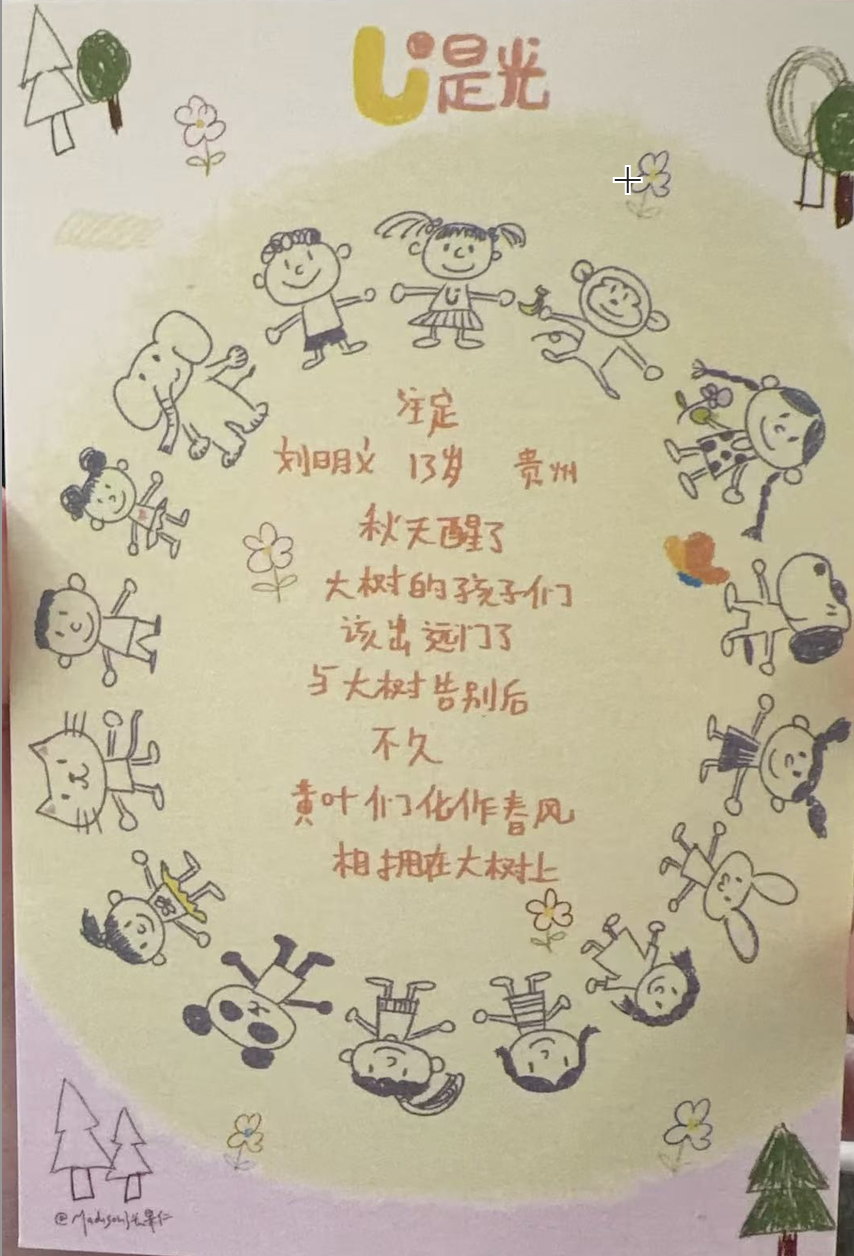 U是光
注定
刘明义 13岁 贵州
秋天醒了
大树的孩子们
该出远门了
与大树告别后
不久
黄叶们化作春风
相拥在大树上
@Madison